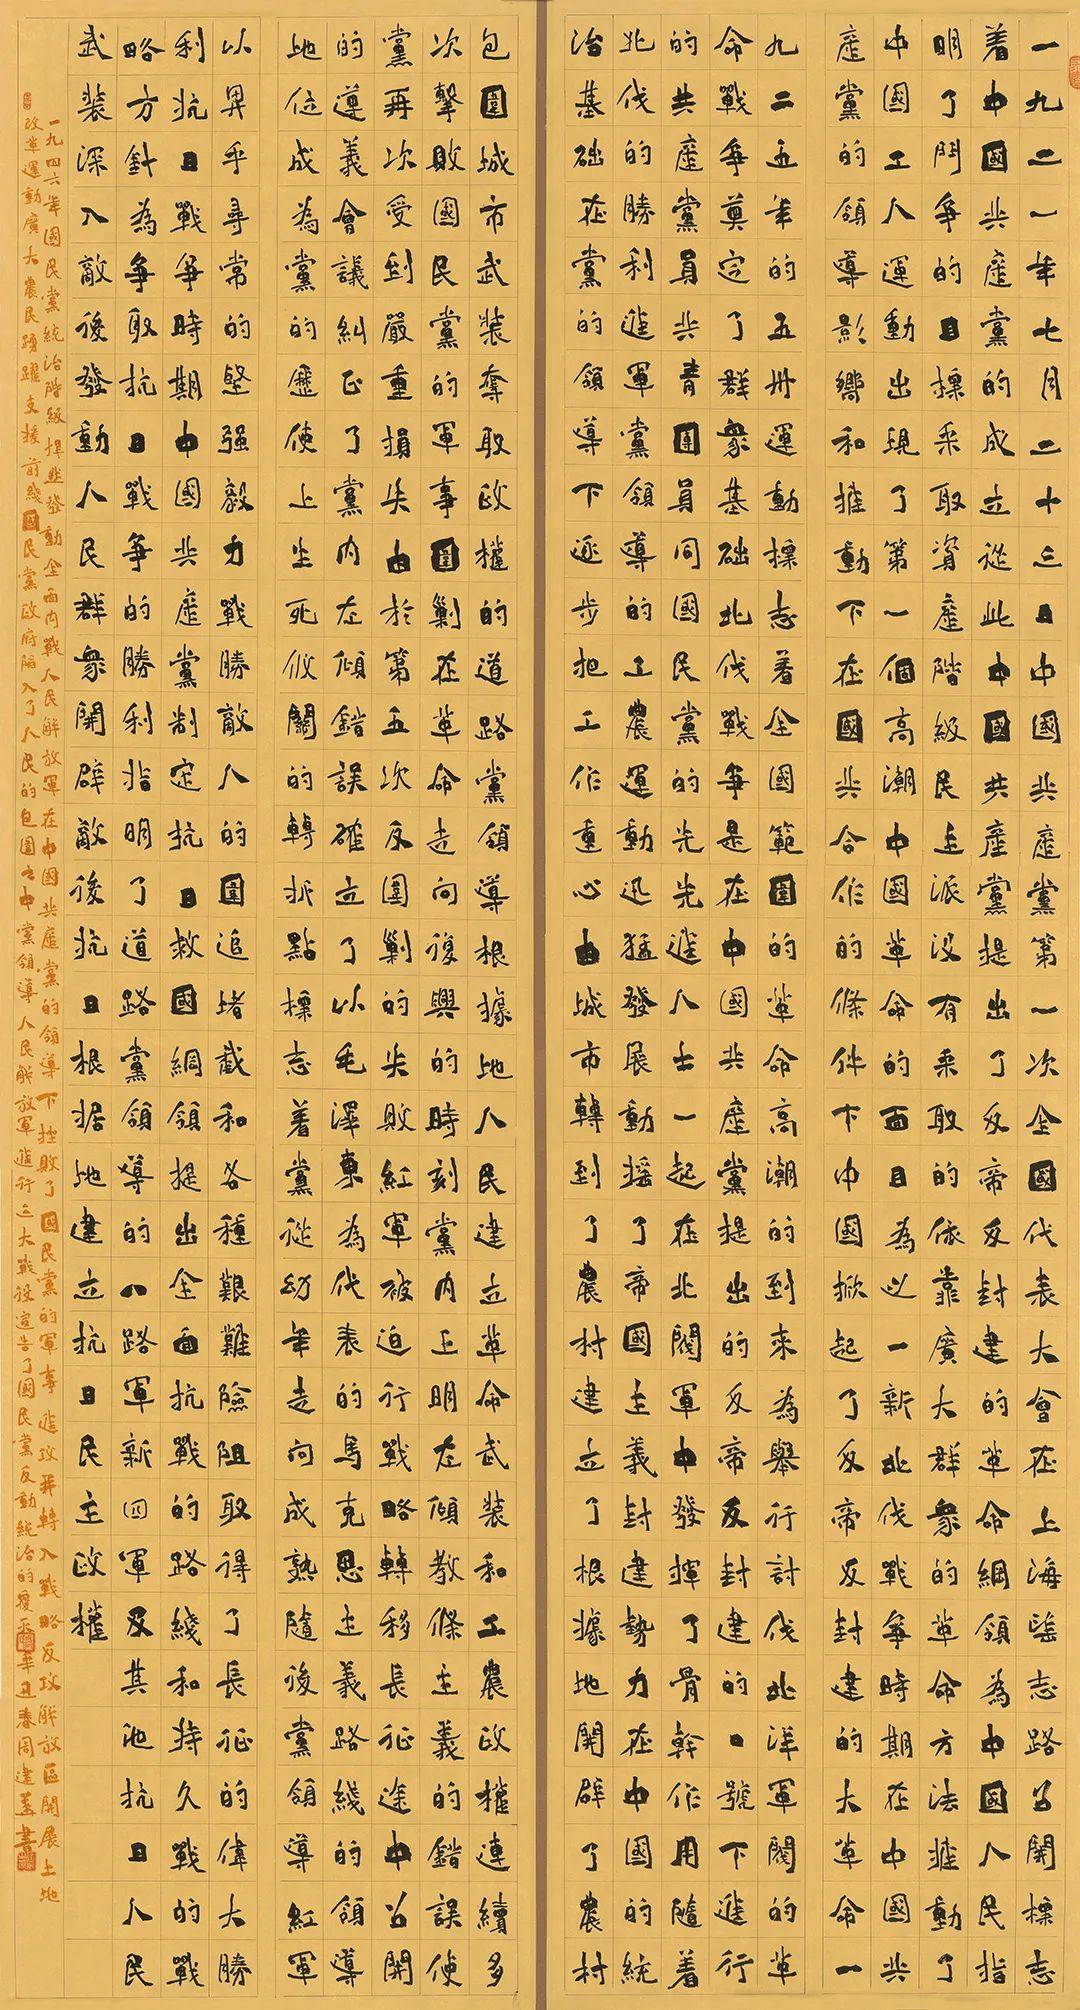 一九二一年七月二十三日中國共產黨第一次全國代表大會在上海望志路召開標志
着中國共產黨的成立從此中國共產黨提出了反帝反封建的革命綱領為中國人民指
明了鬥爭的目標采取資產階級民主派沒有采取的依靠廣大群衆的革命方法推動了
中國工人運動出現了第一個高潮中國革命的面目為以一新北伐戰爭時期在中國共
產黨的領導影響和推動下在國共合作的條件下中國掀起了反帝反封建的大革命一
九二五年的五卅運動標志着全國範圍的革命高潮的到來為舉行討伐北洋軍閥的革
命戰爭奠定了群衆基礎北伐戰爭是在中國共產黨提出的反帝反封建的口號下進行
的共產黨員共青團員同國民黨的光先進人士一起在北閥軍中發揮了骨幹作用隨着
北伐的勝利進軍黨領導的工農運動迅猛發展動搖了帝國主義封建勢力在中國的統
治基础在黨的領導下逐步把工作重心由城市轉到了農村建立了根據地開辟了農村
包圍城市武裝奪取政權的道路黨領導根據地人民建立革命武裝和工農政權連續多
次擊敗國民黨的軍事圍剿在革命走向復興的時刻黨内王明左傾教條主義的錯誤使
黨再次受到嚴重損失由於第五次反圍剿的失敗紅軍被迫行戰略轉移長征途中召開
的遵義會議糾正了黨内左傾錯誤確立了以毛澤東為代表的馬克思主義路綫的領導
地位成為黨的歷使上生死攸關的轉折點標志着黨從幼年走向成熟隨後黨領導紅軍
以異乎尋常的堅强毅力戰勝敵人的圍追堵截和各種艱難險阻取得了長征的偉大勝
利抗日戰爭時期中國共產黨制定抗日救國綱領提出全面抗戰的路綫和持久戰的戰
略方針為爭取抗日戰爭的勝利指明了道路黨領導的八路軍新四軍及其他抗日人民
武裝深入敵後發動人民群衆開辟敵後抗日根据地建立抗日民主政權
一九四六年國民黨統治階級悍然發動全面内戰人民解放軍在中國共產黨的領導下挫敗了國民黨的軍事進攻并轉入戰略反攻解放區開展土地
改革運動廣大農民踴躍支援前綫國民黨政府陷入了人民的包圍之中黨領導人民解放軍進行三大戰役宣告了國民黨反動統治的覆亡辛丑春周建書